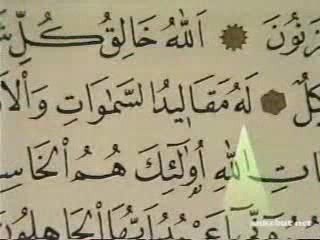 زَنُونَ اَللّٰهُ خَالِقُ كُلِّ
كِيلٌ لَهُ مَقَالِيدُ السَّمٰوَاتِ وَالْاَ
يَاتِ اللّٰهِ اُو۬لٰٓئِكَ هُمُ الْخَاسِ
اَعْبُدُ اَيُّهَا الْجَاهِلُونَ